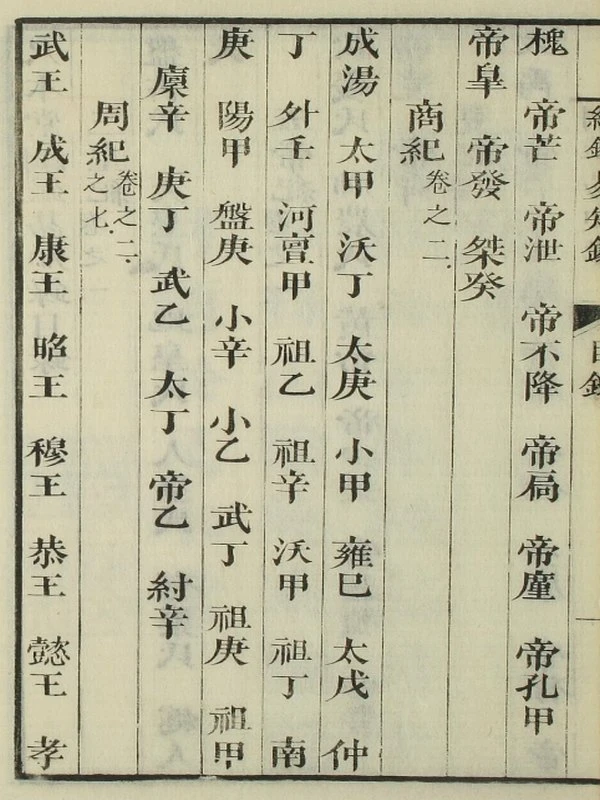 槐 帝芒 帝泄 帝不降 帝扃 帝廑 帝孔甲
帝皐 帝發 桀癸
商紀 卷之二
成湯 太甲 沃丁 太庚 小甲 雍巳 太戊 仲
丁 外壬 河亶甲 祖乙 祖辛 沃甲 祖丁 南
庚 陽甲 盤庚 小辛 小乙 武丁 祖庚 祖甲
廩辛 庚丁 武乙 太丁 帝乙 紂辛
周紀 卷之二 之七
武王 成王 康王 昭王 穆王 恭王 懿王 孝